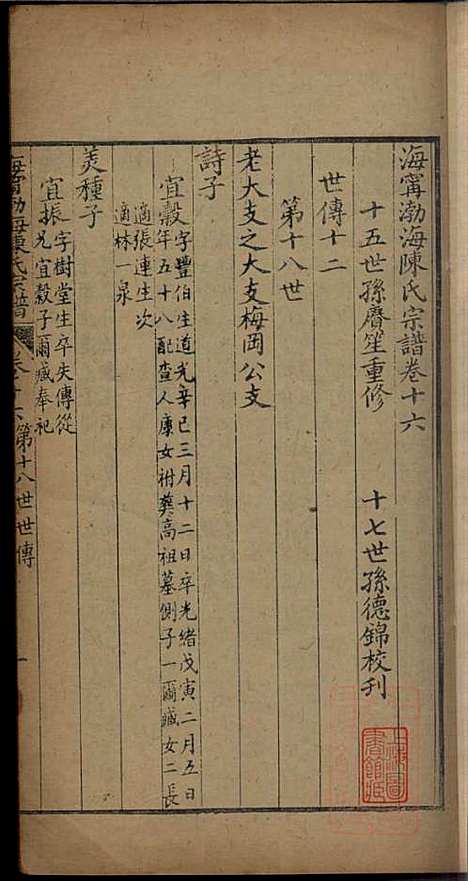 海寧渤海陳氏宗譜卷十六
十五世孫賡笙重修
十七世孫德錦校刊
世傳十二
第十八世
老大支之大支梅岡公支
詩子
宜穀字豐伯生道光辛巳三月十二日卒光緒戊寅二月五日
年五十八配查人康女祔葬高祖墓側子一爾臧女二長
適張連生次
適林一泉
美種子
宜振字樹堂生卒失傳從
兄宜穀子爾臧奉祀
海寧渤海陳氏宗譜 卷十六 第十八世世傳 一